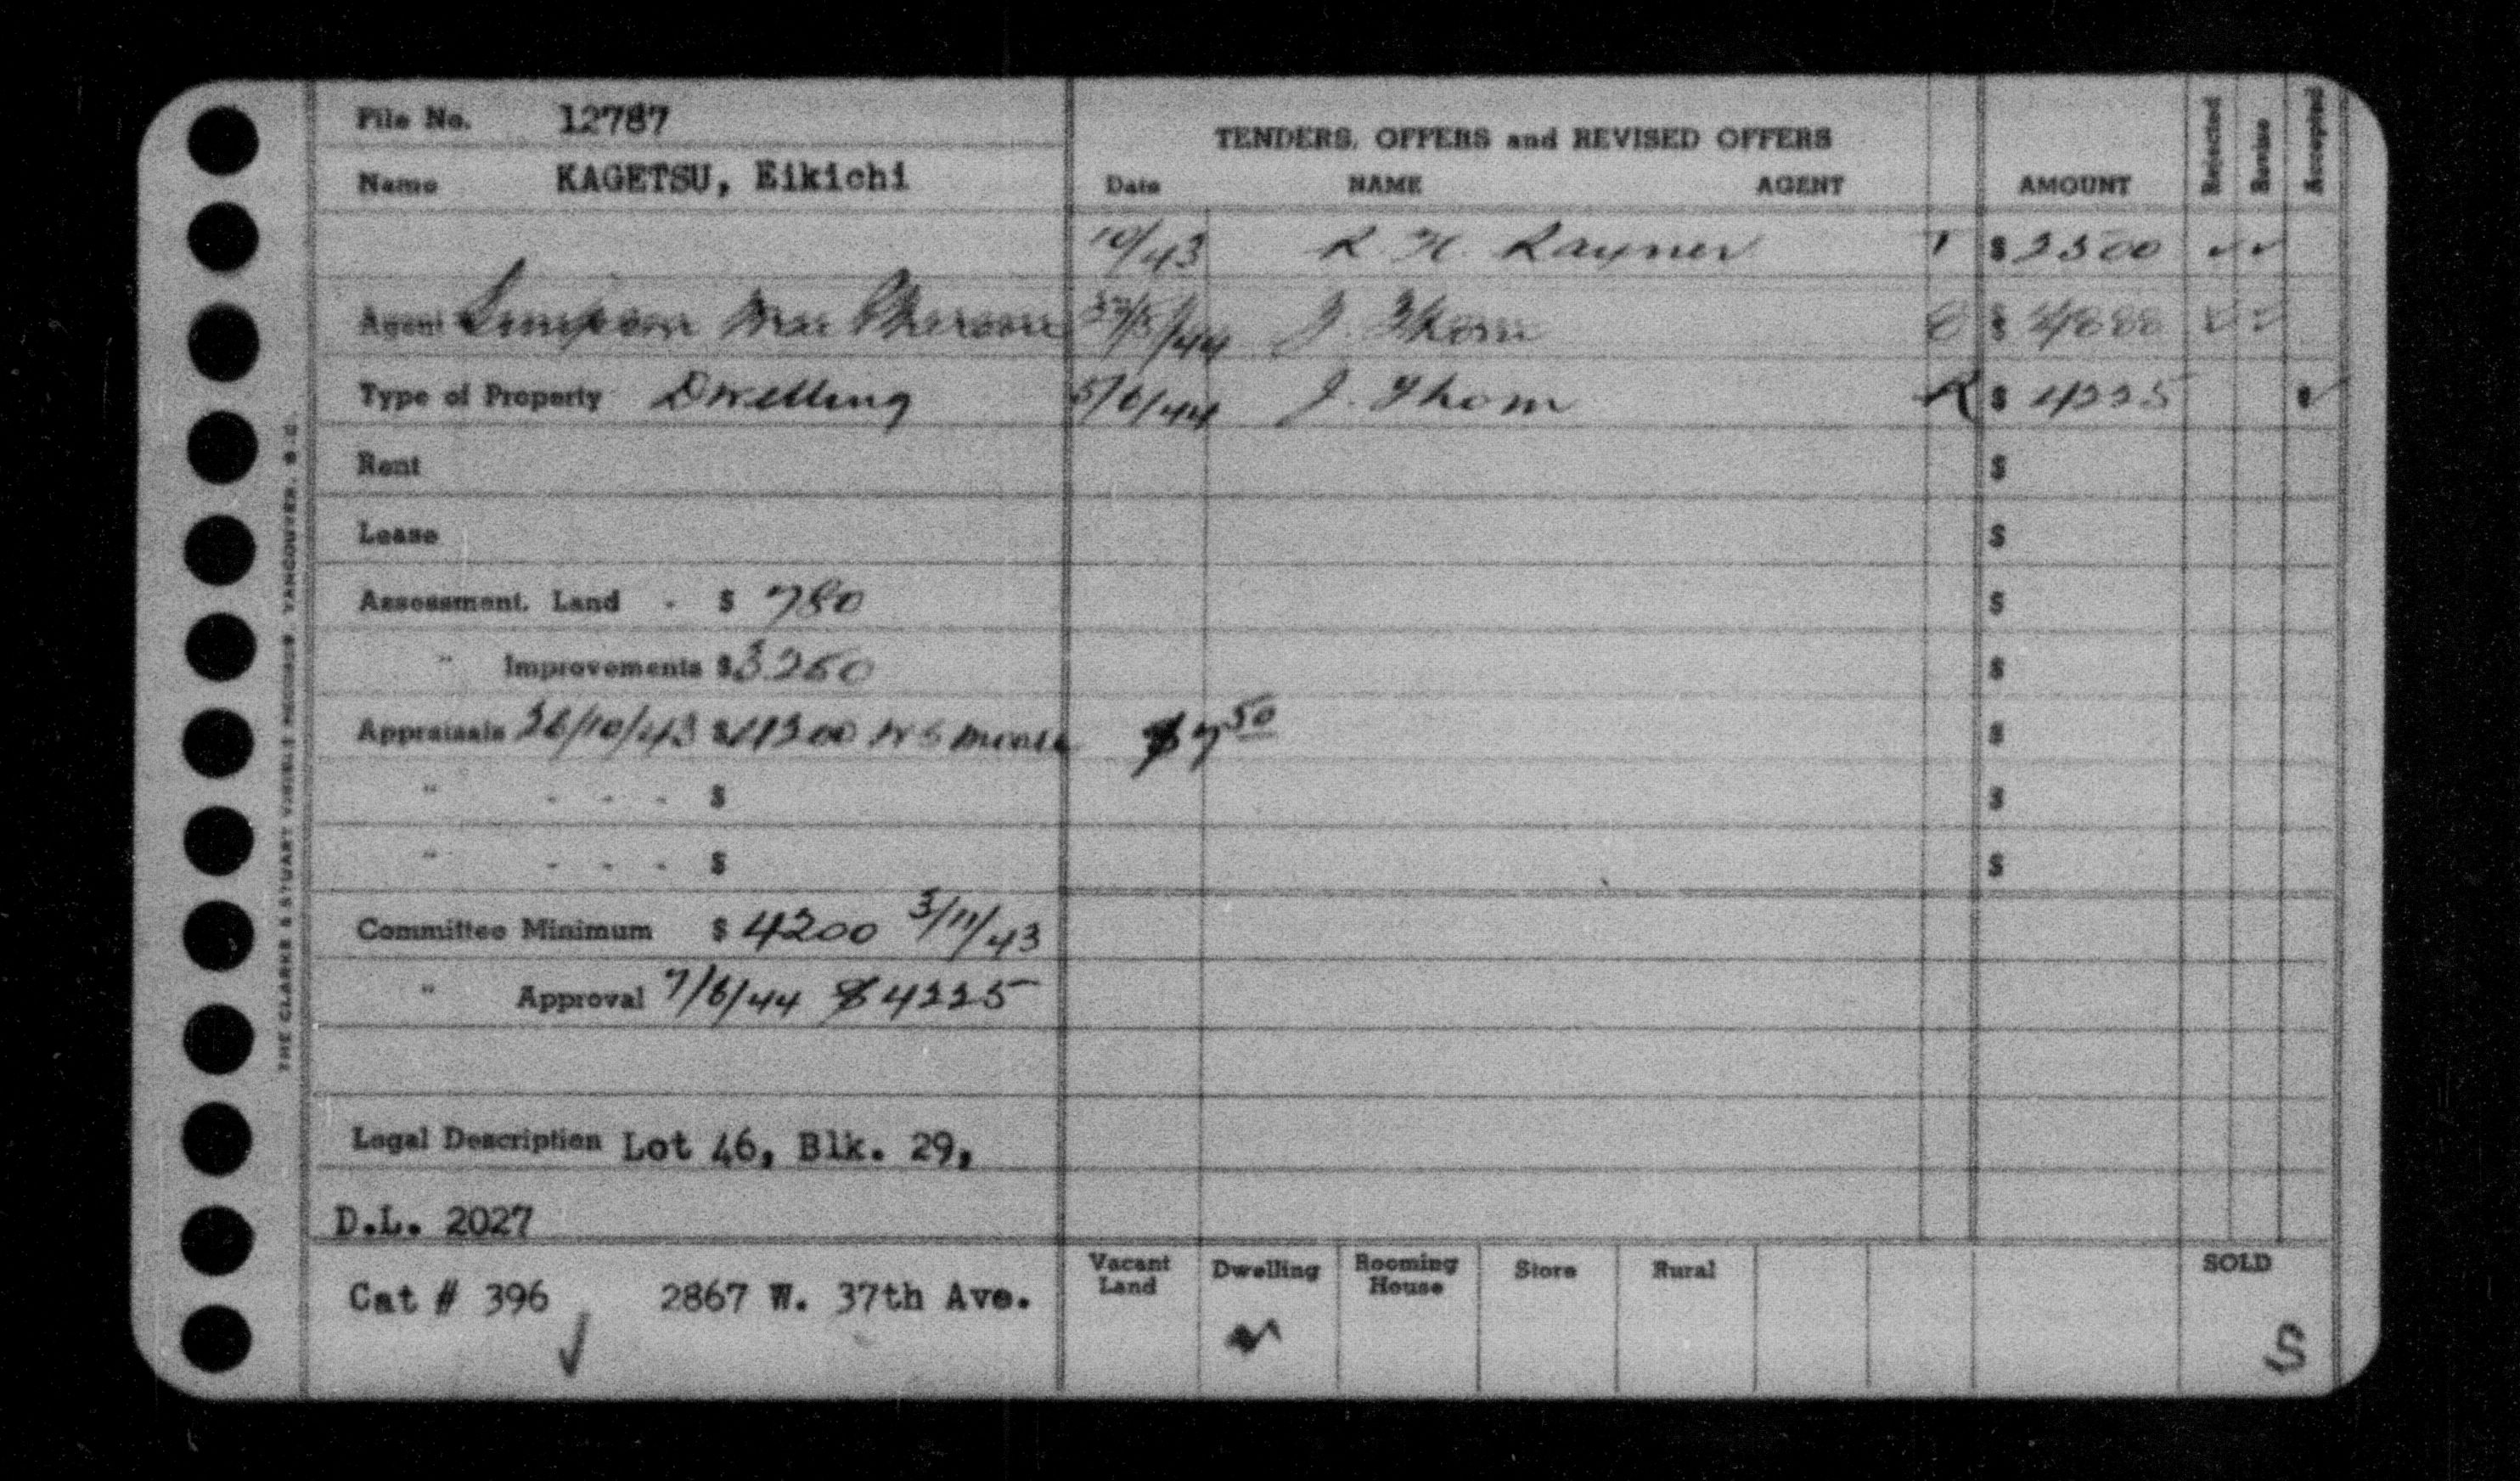 File No. 12787
Name KAGETSU, Eikichi
Agent Simpson MacPherson
Type of Property Dwelling
Rent
Lease
Assessment. Land - $ 780
" Improvements $ 3250
Appraisals 26/10/43 $ 4200 W S
" - - - $
" - - - $
Committee Minimum $ 4200 3/11/43
" Approval 7/6/44 $ 4225
Legal Description Lot 46, Blk. 29,
D.L. 2027
Cat # 396 2867 W. 37th Ave.
THE CLARKE & STUART VISIBLE RECORDS, VANCOUVER, B.C.
TENDERS, OFFERS and REVISED OFFERS
Date NAME AGENT AMOUNT Rejected Revise Accepted
10/43 R. H. Rayner T $ 2500 ✓ ✓
/5/44 J. Thom O $ ✓ ✓
5/6/44 J. Thom R $ 4225 ✓
$
$
$
$
$7 50 $
$
$
Vacant Land Dwelling Rooming House Store Rural SOLD
✓ ✓ S